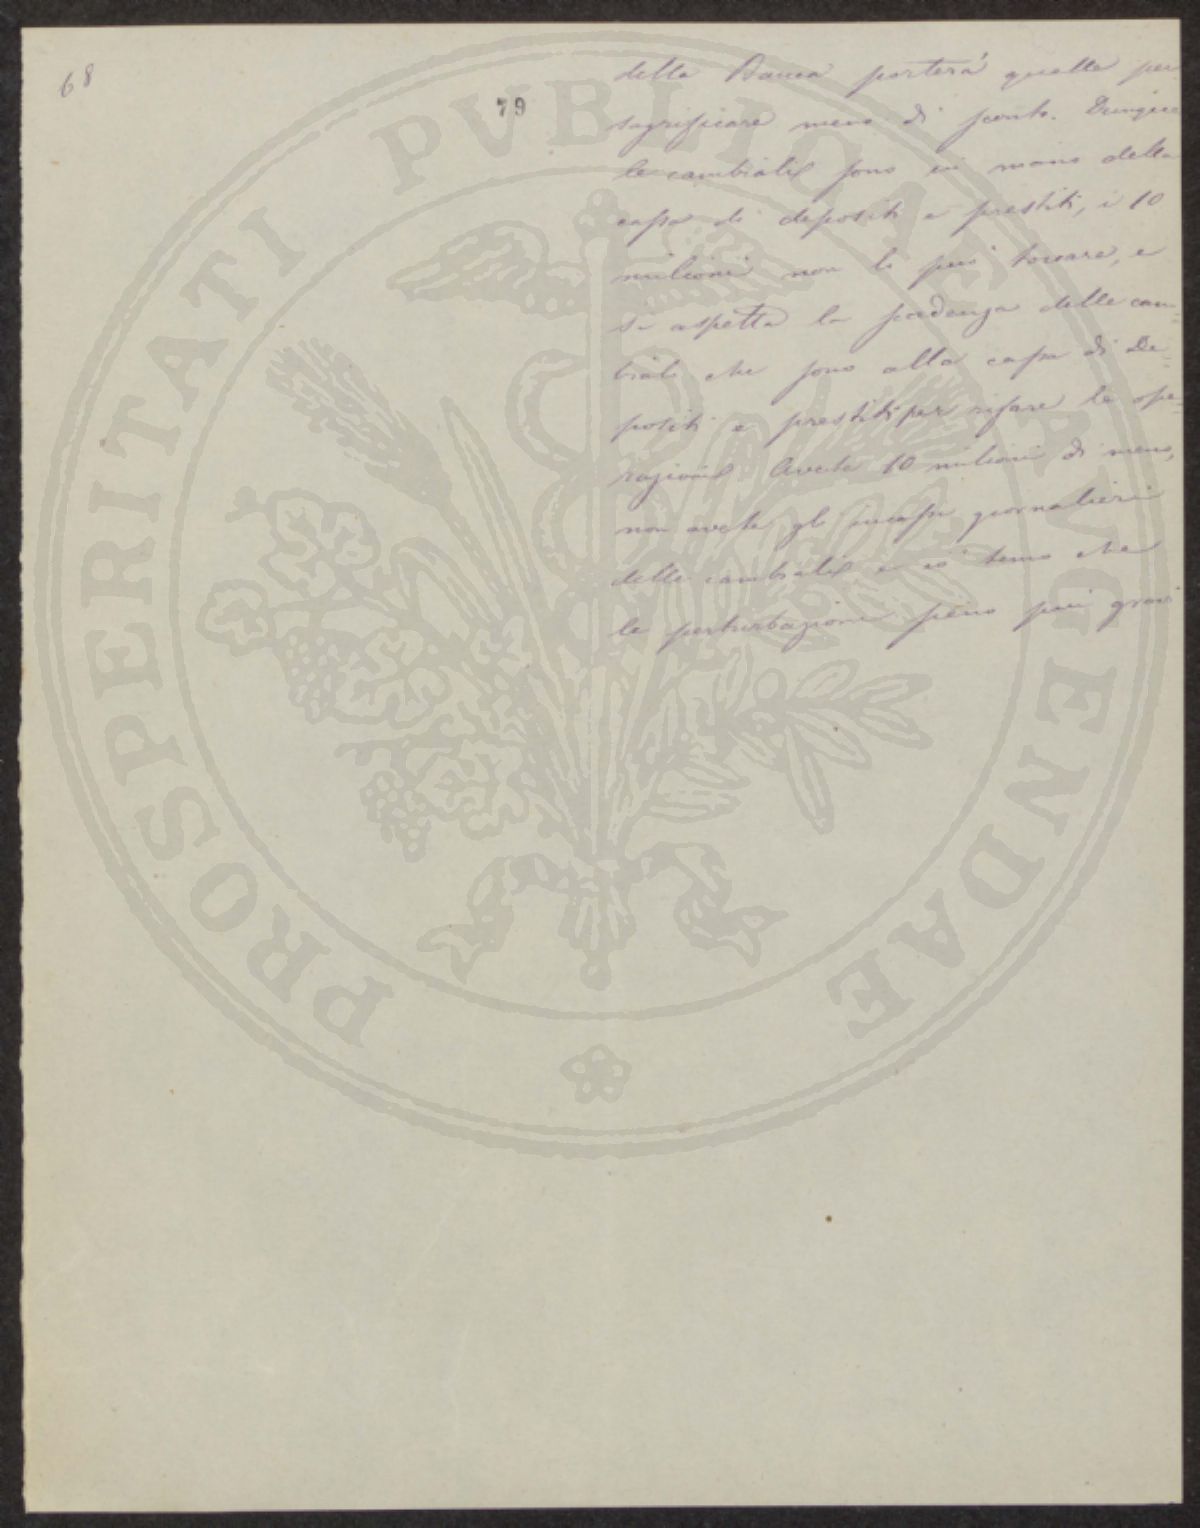 68
79
della Banca porterà quelle per
sagrificare meno di sconto. Dunque
le cambiali sono in mano della
cassa di depositi e prestiti, i 10
milioni non li può toccare, e
si aspetta la scadenza delle cam=
biali che sono alla cassa di De=
positi e prestiti per rifare le ope=
razioni Avete 10 milioni di meno,
non avete gl'incassi giornalieri
delle cambiali e io temo che
le perturbazioni sieno più gravi
PROSPERITATI PVBLICAE AVGENDAE